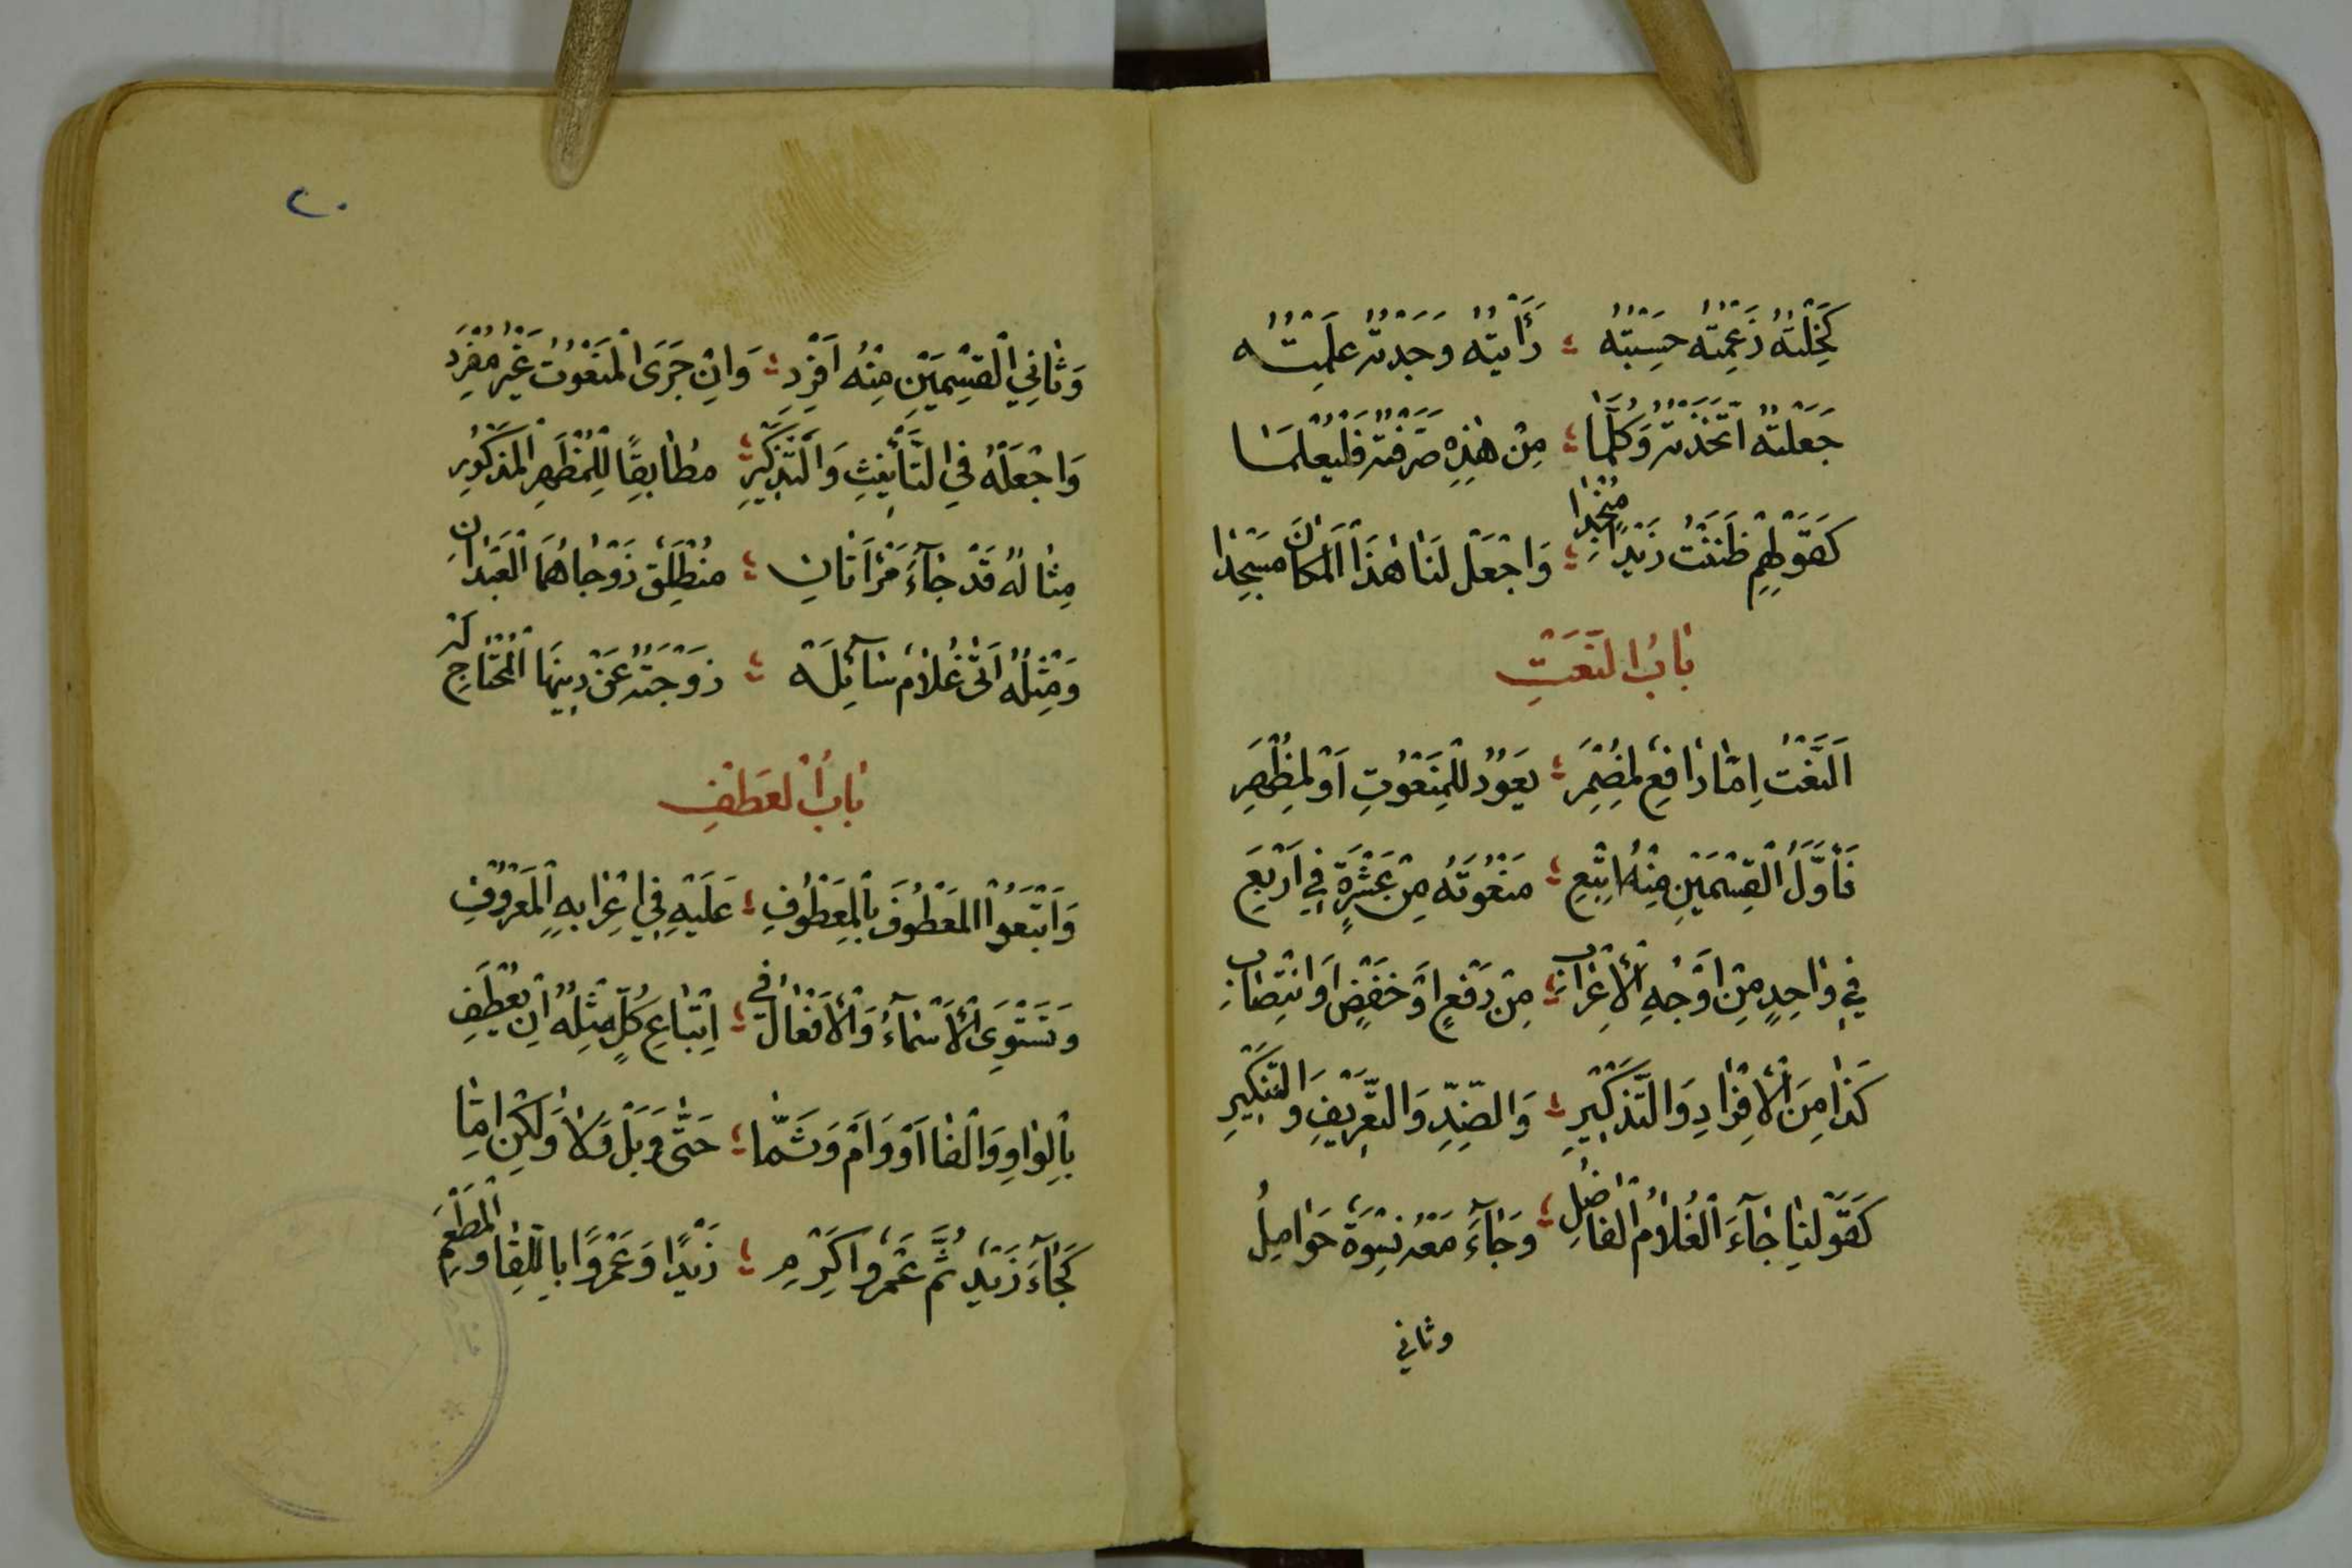 كَخِلْتُهُ زَعَمْتُهُ حَسِبْتُهُ ؛ رَأَيْتُهُ وَجَدْتُهُ عَلِمْتُهُ
جَعَلْتُهُ اتَّخَذْتُهُ وَكُلَّمَا ؛ مِنْ هٰذِهِ صَرَفْتَهُ فَلْيُعْلَمَا
كَقَوْلِهِمْ ظَنَنْتُ زَيْدًا مُنْجِدًا ؛ وَاجْعَلْ لَنَا هٰذَا الْمَكَانَ مَسْجِدًا
بَابُ النَّعْتِ
اَلنَّعْتُ اِمَّا رَافِعٌ لِمُضْمَرِ ؛ يَعُوْدُ لِلْمَنْعُوْتِ اَوْ لِمُظْهَرِ
فَأَوَّلُ الْقِسْمَيْنِ مِنْهُ اتْبِعِ ؛ مَنْعُوْتَهُ مِنْ عَشْرَةٍ فِي اَرْبَعِ
فِي وَاحِدٍ مِنْ اَوْجُهِ الْأِعْرَابِ ؛ مِنْ رَفْعٍ اَوْ خَفْضٍ اَوِ انْتِصَابِ
كَذَا مِنَ الْأِفْرَادِ وَالتَّذْكِيْرِ ؛ وَالضِّدِّ وَالتَّعْرِيْفِ وَالتَّنْكِيْرِ
كَقَوْلِنَا جَآءَ الْغُلَامُ الْفَاضِلُ ؛ وَجَآءَ مَعْهُ نِسْوَةٌ حَوَامِلُ
وثاني
٢٠
وَثَانِيَ الْقِسْمَيْنِ مِنْهُ اَفْرِدِ ؛ وَاِنْ جَرَى الْمَنْعُوْتُ غَيْرَ مُفْرَدِ
وَاجْعَلْهُ فِي التَّأْنِيْثِ وَالتَّذْكِيْرِ ؛ مُطَابِقًا لِلْمُظْهَرِ الْمَذْكُوْرِ
مِثَالُهُ قَدْ جَآءَ مَرْأَتَانِ ؛ مُنْطَلِقٌ زَوْجَاهُمَا الْعَبْدَانِ
وَمِثْلُهُ اَتَى غُلَامٌ سَآئِلَهْ ؛ زَوْجَتُهُ عَنْ دِيْنِهَا الْمُحْتَاجِ لَهْ
بَابُ الْعَطْفِ
وَاَتْبَعُوْا الْمَعْطُوْفَ بِالْمَعْطُوْفِ ؛ عَلَيْهِ فِي اِعْرَابِهِ الْمَعْرُوْفِ
وَتَسْتَوِى الْأَسْمَآءُ وَالْأَفْعَالُ فِي ؛ اِتْبَاعِ كُلٍّ مِثْلَهُ اِنْ يُعْطَفِ
بِالْوَاوِ وَالْفَا اَوْ وَاَمْ وَثُمَّا ؛ حَتَّى وَبَلْ وَلَا وَلٰكِنْ اِمَّا
كَجَآءَ زَيْدٌ ثُمَّ عَمْرٌو اَكْرِمِ ؛ زَيْدًا وَعَمْرًوا بِاللِّقَا وَالْمَطْعَمِ